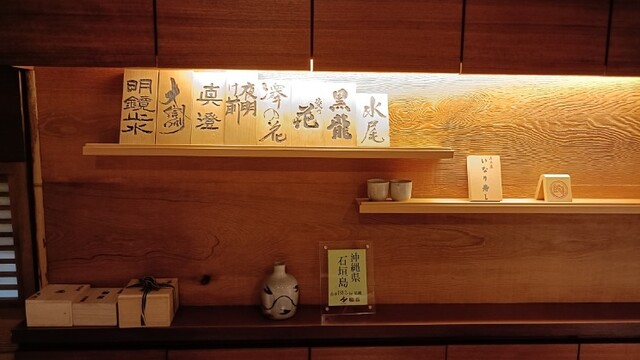 明鏡止水
大信州
真澄
夜明け前
澤の花
花
黒龍
水尾
いなり寿し
沖縄県
石垣島